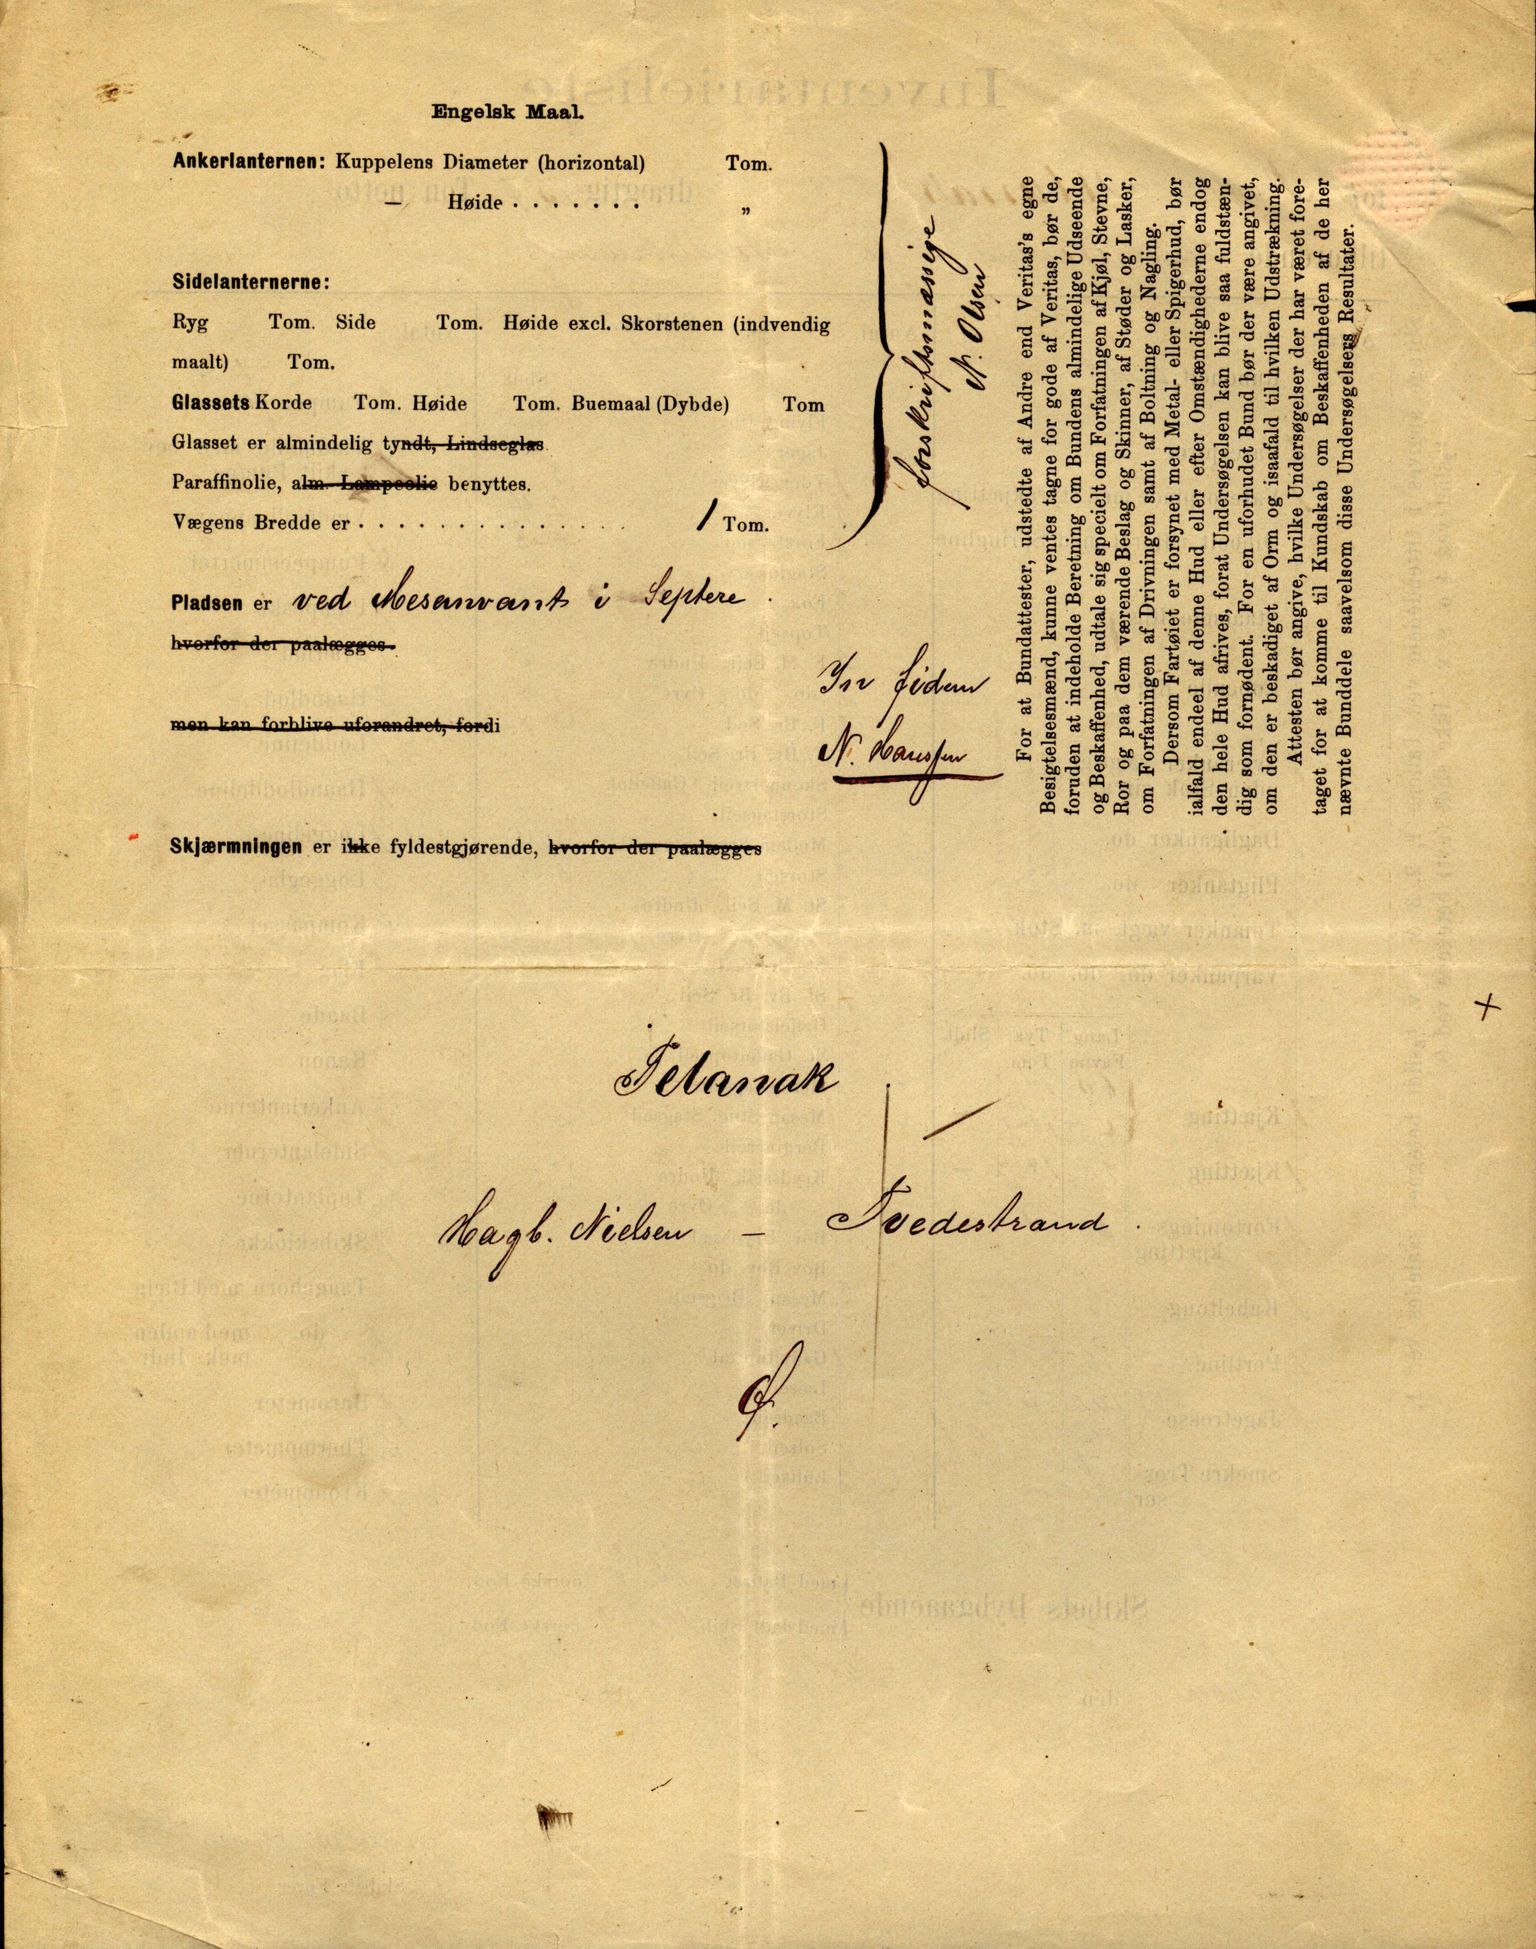 Engelsk Maal.
Ankerlanternen: Kuppelens Diameter (horizontal) Tom.
— Høide . . . . . . . „
Sidelanternerne:
Ryg Tom. Side Tom. Høide excl. Skorstenen (indvendig
maalt) Tom.
Glassets Korde Tom. Høide Tom. Buemaal (Dybde) Tom
Glasset er almindelig tyndt, Lindseglas
Paraffinolie, alm. Lampeolie benyttes.
Vægens Bredde er . . . . . . . . . . . . . . . 1 Tom.
forskriftsmæssige
N. Olsen
Pladsen er ved Mesanvant i Septere.
hvorfor der paalægges.
men kan forblive uforandret, fordi
In fidem
N. Hanssen
Skjærmningen er ikke fyldestgjørende, hvorfor der paalægges
For at Bundattester, udstedte af Andre end Veritas's egne
Besigtelsesmænd, kunne ventes tagne for gode af Veritas, bør de,
foruden at indeholde Beretning om Bundens almindelige Udseende
og Beskaffenhed, udtale sig specielt om Forfatningen af Kjøl, Stevne,
Ror og paa dem værende Beslag og Skinner, af Støder og Lasker,
om Forfatningen af Drivningen samt af Boltning og Nagling.
Dersom Fartøiet er forsynet med Metal- eller Spigerhud, bør
ialfald endeel af denne Hud eller efter Omstændighederne endog
den hele Hud afrives, forat Undersøgelsen kan blive saa fuldstæn-
dig som fornødent. For en uforhudet Bund bør der være angivet,
om den er beskadiget af Orm og isaafald til hvilken Udstrækning.
Attesten bør angive, hvilke Undersøgelser der har været fore-
taget for at komme til Kundskab om Beskaffenheden af de her
nævnte Bunddele saavelsom disse Undersøgelsers Resultater.
Telanak
Hagb. Nielsen — Tvedestrand.
Ø.